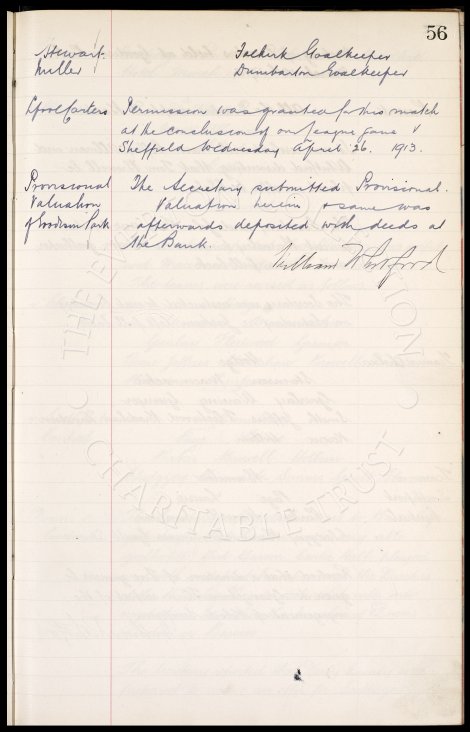 56
Stewart Falkirk Goalkeeper
Miller Dumbarton Goalkeeper
L'pool Carters Permission was granted for this match
at the conclusion of our league game v
Sheffield Wednesday April 26. 1913.
Provisional The Secretary submitted Provisional
Valuation Valuation herein & same was
of Goodison Park afterwards deposited with deeds at
the Bank.
William Whitford
THE EVERTON COLLECTION
CHARITABLE TRUST